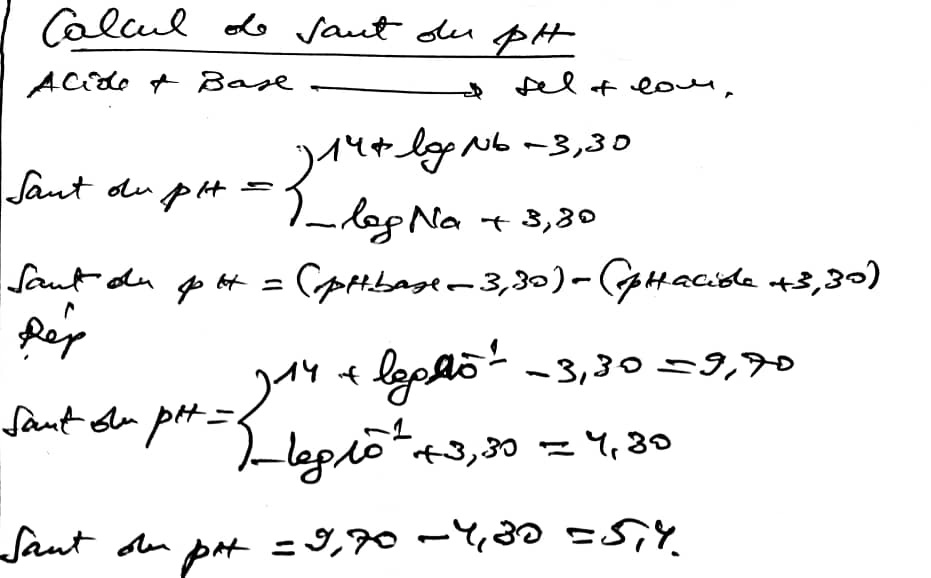 Calcul de saut du pH
Acide + Base → sel + eau.
14 + log Nb - 3,30
Saut du pH = {
- log Na + 3,30
Saut du pH = (pHbase - 3,30) - (pHacide + 3,30)
Rép
14 + log 10⁻¹ - 3,30 = 9,70
Saut du pH = {
- log 10⁻¹ + 3,30 = 4,30
Saut du pH = 9,70 - 4,30 = 5,4.